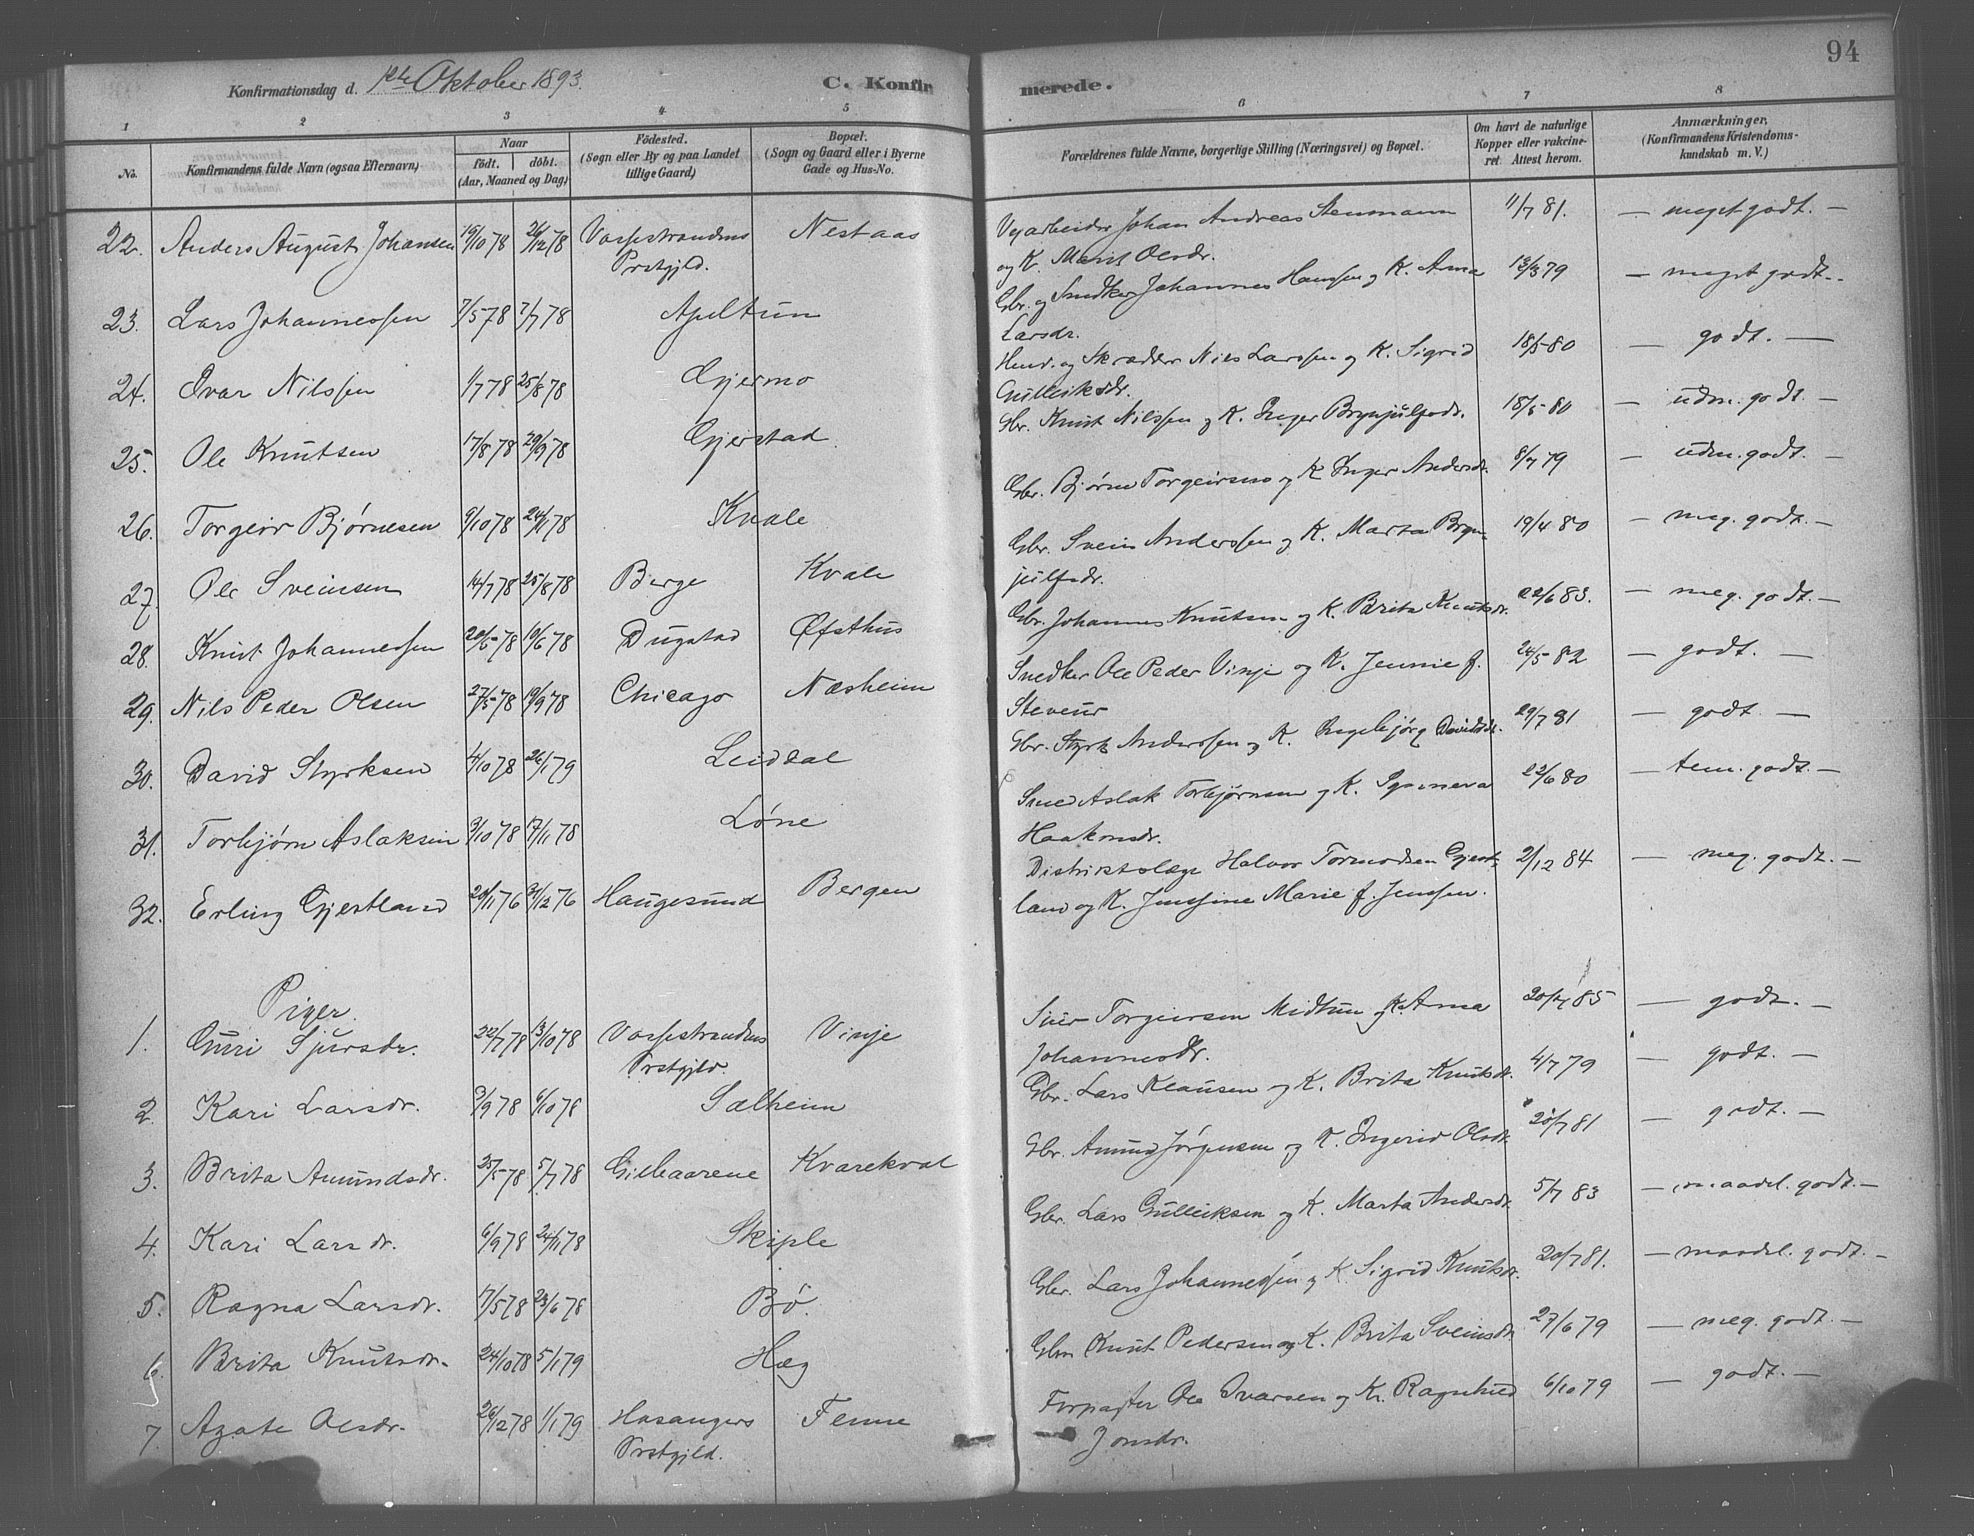 94
Konfirmationsdag d. 1ste Oktober 1893. C. Konfirmerede.
1 2 3 4 5 6 7 8
No. Konfirmandens fulde Navn (ogsaa Efternavn) Naar født. døbt. (Aar, Maaned og Dag) Fødested. (Sogn eller By og paa Landet tillige Gaard.) Bopæl. (Sogn og Gaard eller i Byerne Gade og Hus-No. Forældrenes fulde Navne, borgerlige Stilling (Næringsvei) og Bopæl. Om havt de naturlige Kopper eller vakcineret Attest herom. Anmærkninger, (Konfirmandens Kristendomskundskab m. V.)
22. Anders August Johansen 19/10 78 26/12 78 Vossestrandens Prstgjld. Nestaas Vejarbeider Johan Andreas Stenmann og K. Marit Olsdr. 11/7 81. — meget godt. —
23. Lars Johannessen 7/5 78 7/7 78 Apeltun Gbr. og Snedker Johannes Hansen og K. Anna Larsdr. 13/3 79 — meget godt. —
24. Ivar Nilssen 1/7 78 25/8 78 Gjermo Husm. og Skrædder Nils Larssen og K. Sigrid Gulleiksdr. 18/5 80 — godt. —
25. Ole Knutsen 17/8 78 29/9 78 Gjerstad Gbr. Knut Nilssen og K. Inger Brynjulfsdr. 18/5 80 — udm. godt. —
26. Torgeir Bjørnesen 9/10 78 24/11 78 Kvale Gbr. Bjørne Torgeirsen og K Inger Andersdr. 8/7 79 — udm. godt. —
27. Ole Sveinsen 14/7 78 25/8 78 Berge Kvale Gbr. Svein Anderssen og K. Marta Brynjulfsdr. 19/4 80 — meg. godt. —
28. Knut Johannessen 20/5 78 10/6 78 Dugstad Øfsthus Gbr. Johannes Knutsen og K. Brita Knutsdr. 22/6 83. — meg. godt. —
29. Nils Peder Olsen 27/5 78 19/9 78 Chicago Næsheim Snedker Ole Peder Vinje og K. Jennie f. Steveur 24/5 82 — godt. —
30. David Styrksen 4/10 78 26/1 79 Leiddal Gbr. Styrk Anderssen og K. Ingebjørg Davidsdr. 29/7 81 — godt. —
31. Torbjørn Aslaksen 3/10 78 17/11 78 Løne Smed Aslak Torbjørnsen og K. Synneva Haakonsdr. 22/6 80 — tem. godt. —
32. Erling Gjestland 20/11 76 31/12 76 Haugesund Bergen Distriktslæge Halvor Tormodsen Gjestland og K. Jensine Marie f. Jenssen. 2/12 84 — meg. godt. —
Piger.
1. Guri Sjursdr. 22/7 78 13/10 78 Vossestrandens Prstgjld. Vinje Sjur Torgeirsen Midtun og K Anna Johannesdr. 20/7 85 — godt. —
2. Kari Larsdr. 3/9 78 6/10 78 Sælheim Gbr. Lars Klausen og K. Brita Knutsdr. 4/7 79 — godt. —
3. Brita Amundsdr. 25/5 78 5/7 78 Gilbaarene Kvarekval Gbr. Amund Jørgensen og K. Ingerid Olsdr. 20/7 81 — godt. —
4. Kari Larsdr. 6/9 78 24/11 78 Skiple Gbr. Lars Gulleiksen og K. Marta Andersdr. 5/7 83 — maadel. godt. —
5. Ragna Larsdr. 7/5 78 23/6 78 Bø. Gbr. Lars Johannessen og K. Sigrid Knutsdr. 20/7 81. — maadel. godt. —
6. Brita Knutsdr. 24/10 78 5/1 79 Hæg Gbr. Knut Pedersen og K. Brita Sveinsdr. 27/6 79 — meg. godt. —
7. Agate Olsdr. 26/12 78 1/1 79 Hosangers Prstgjld. Fenne Forpagter Ole Ivarsen og K. Ragnhild Jonsdr. 6/10 79 — godt. —